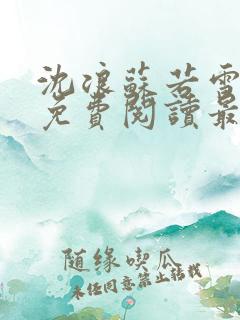 沈浪蘇若雪
免費閱讀最
随缘喫瓜
未经同意禁止转载